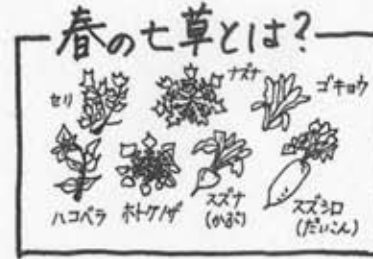 春の七草とは?
セリ
ナズナ
ゴギョウ
ハコベラ
ホトケノザ
スズナ
(かぶ)
スズシロ
(だいこん)